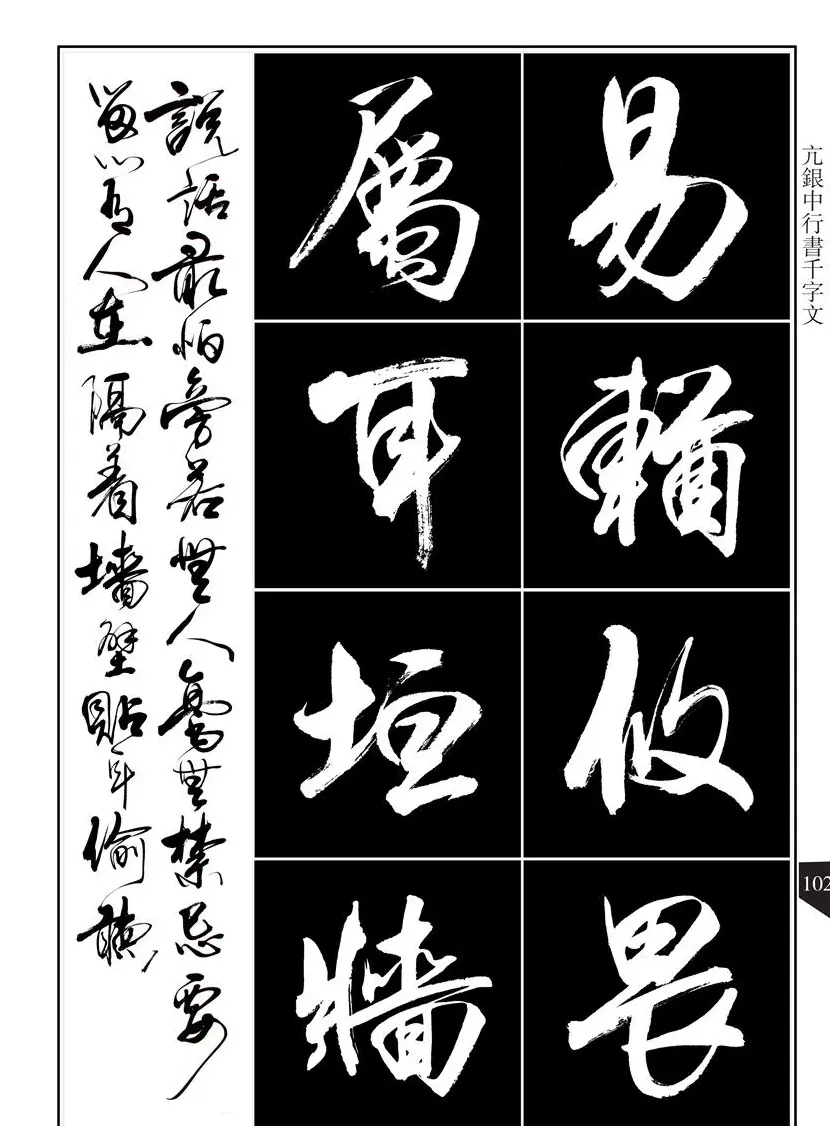 亢銀中行書千字文
易輶攸畏
屬耳垣牆
說話最怕旁若無人毫無禁忌要
留心有人在隔着墻壁貼耳偷聽
102